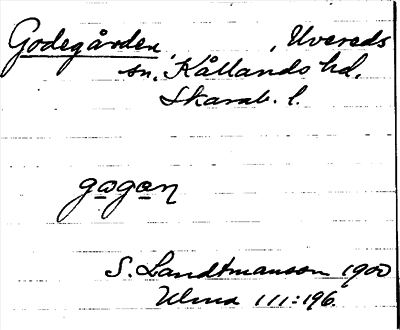 Godegården, , Uvereds
sn. Kållands hd.
Skarab. l.
gogən
S. Landtmanson 1900
Ulma 111:196.